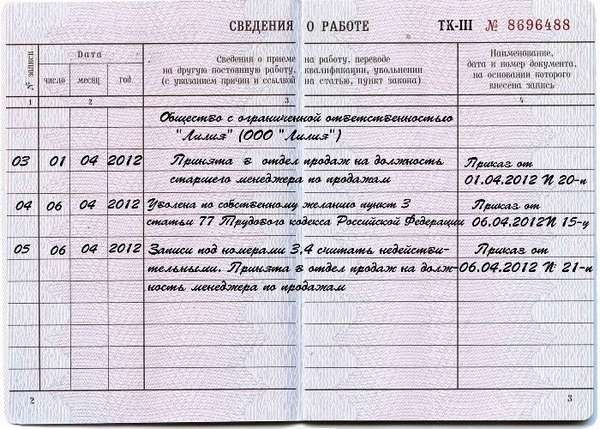 СВЕДЕНИЯ О РАБОТЕ ТК-III № 8696488
№ записи
Дата
число месяц год
Сведения о приеме на работу, переводе
на другую постоянную работу, квалификации, увольнении
(с указанием причин и ссылкой на статью, пункт закона)
Наименование,
дата и номер документа,
на основании которого
внесена запись
1 2 3 4
Общество с ограниченной ответственностью
"Лилия" (ООО "Лилия")
03 01 04 2012 Принята в отдел продаж на должность Приказ от
старшего менеджера по продажам 01.04.2012 № 20-п
04 06 04 2012 Уволена по собственному желанию пункт 3 Приказ от
статьи 77 Трудового кодекса Российской Федерации 06.04.2012 № 15-у
05 06 04 2012 Записи под номерами 3,4 считать недействи- Приказ от
тельными. Принята в отдел продаж на долж- 06.04.2012 № 21-п
ность менеджера по продажам
2 3